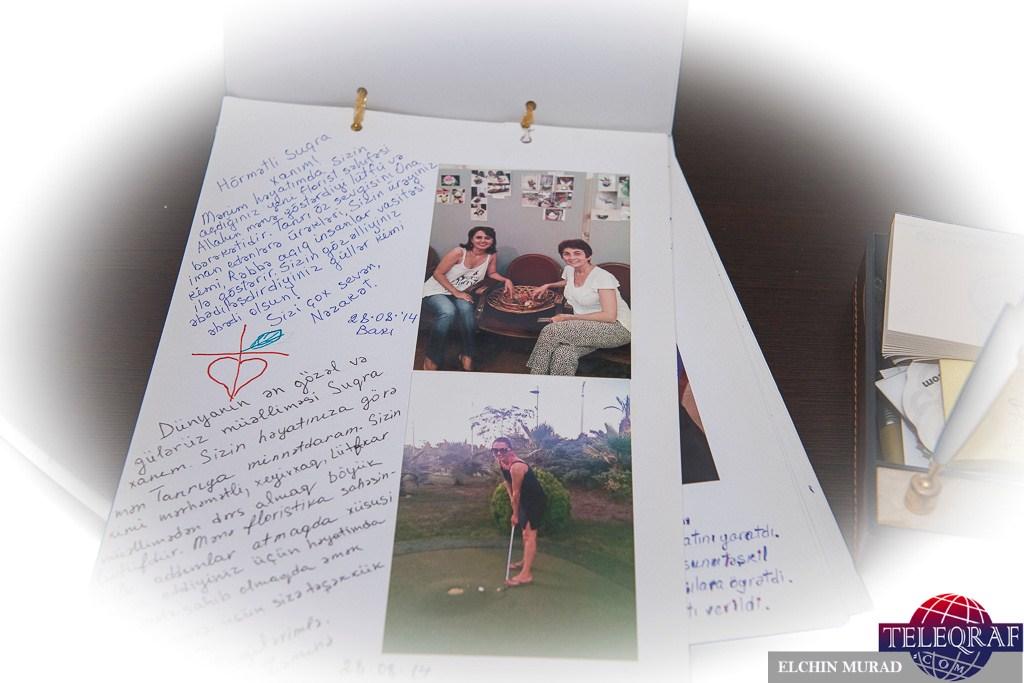 Hörmətli Suqra
xanım!
Mənim həyatımda Sizin
açdığınız yeni florist səhifəsi
Allahın mənə göstərdiyi lütfü və
bərəkətidir. Tanrı öz sevgisini Ona
iman edənlərə ürəkləri, Sizin ürəyiniz
kimi, Rəbbə açıq insanlar vasitəsi
ilə göstərir. Sizin gözəlliyiniz
əbədiləşdirdiyiniz güllər kimi
əbədi olsun!
Sizi çox sevən,
Nəzakət.
28.08.'14
Bakı
Dünyanın ən gözəl və
gülərüz müəlliməsi Suqra
xanım. Sizin həyatınıza görə
mən Tanrıya minnətdaram. Sizin
mərhəmətli, xeyirxaq, lütfkar
müəllimədən dərs almaq böyük
lütfdür. Mənə floristika sahəsin-
addımlar atmaqda xüsusi
etdiyiniz üçün həyatımda
sahib olmaqda əmək
üçün sizə təşəkkür
28.08.14
atını yaratdı.
öyrətdi.
verildi.
TELEQRAF
.COM
ELCHIN MURAD